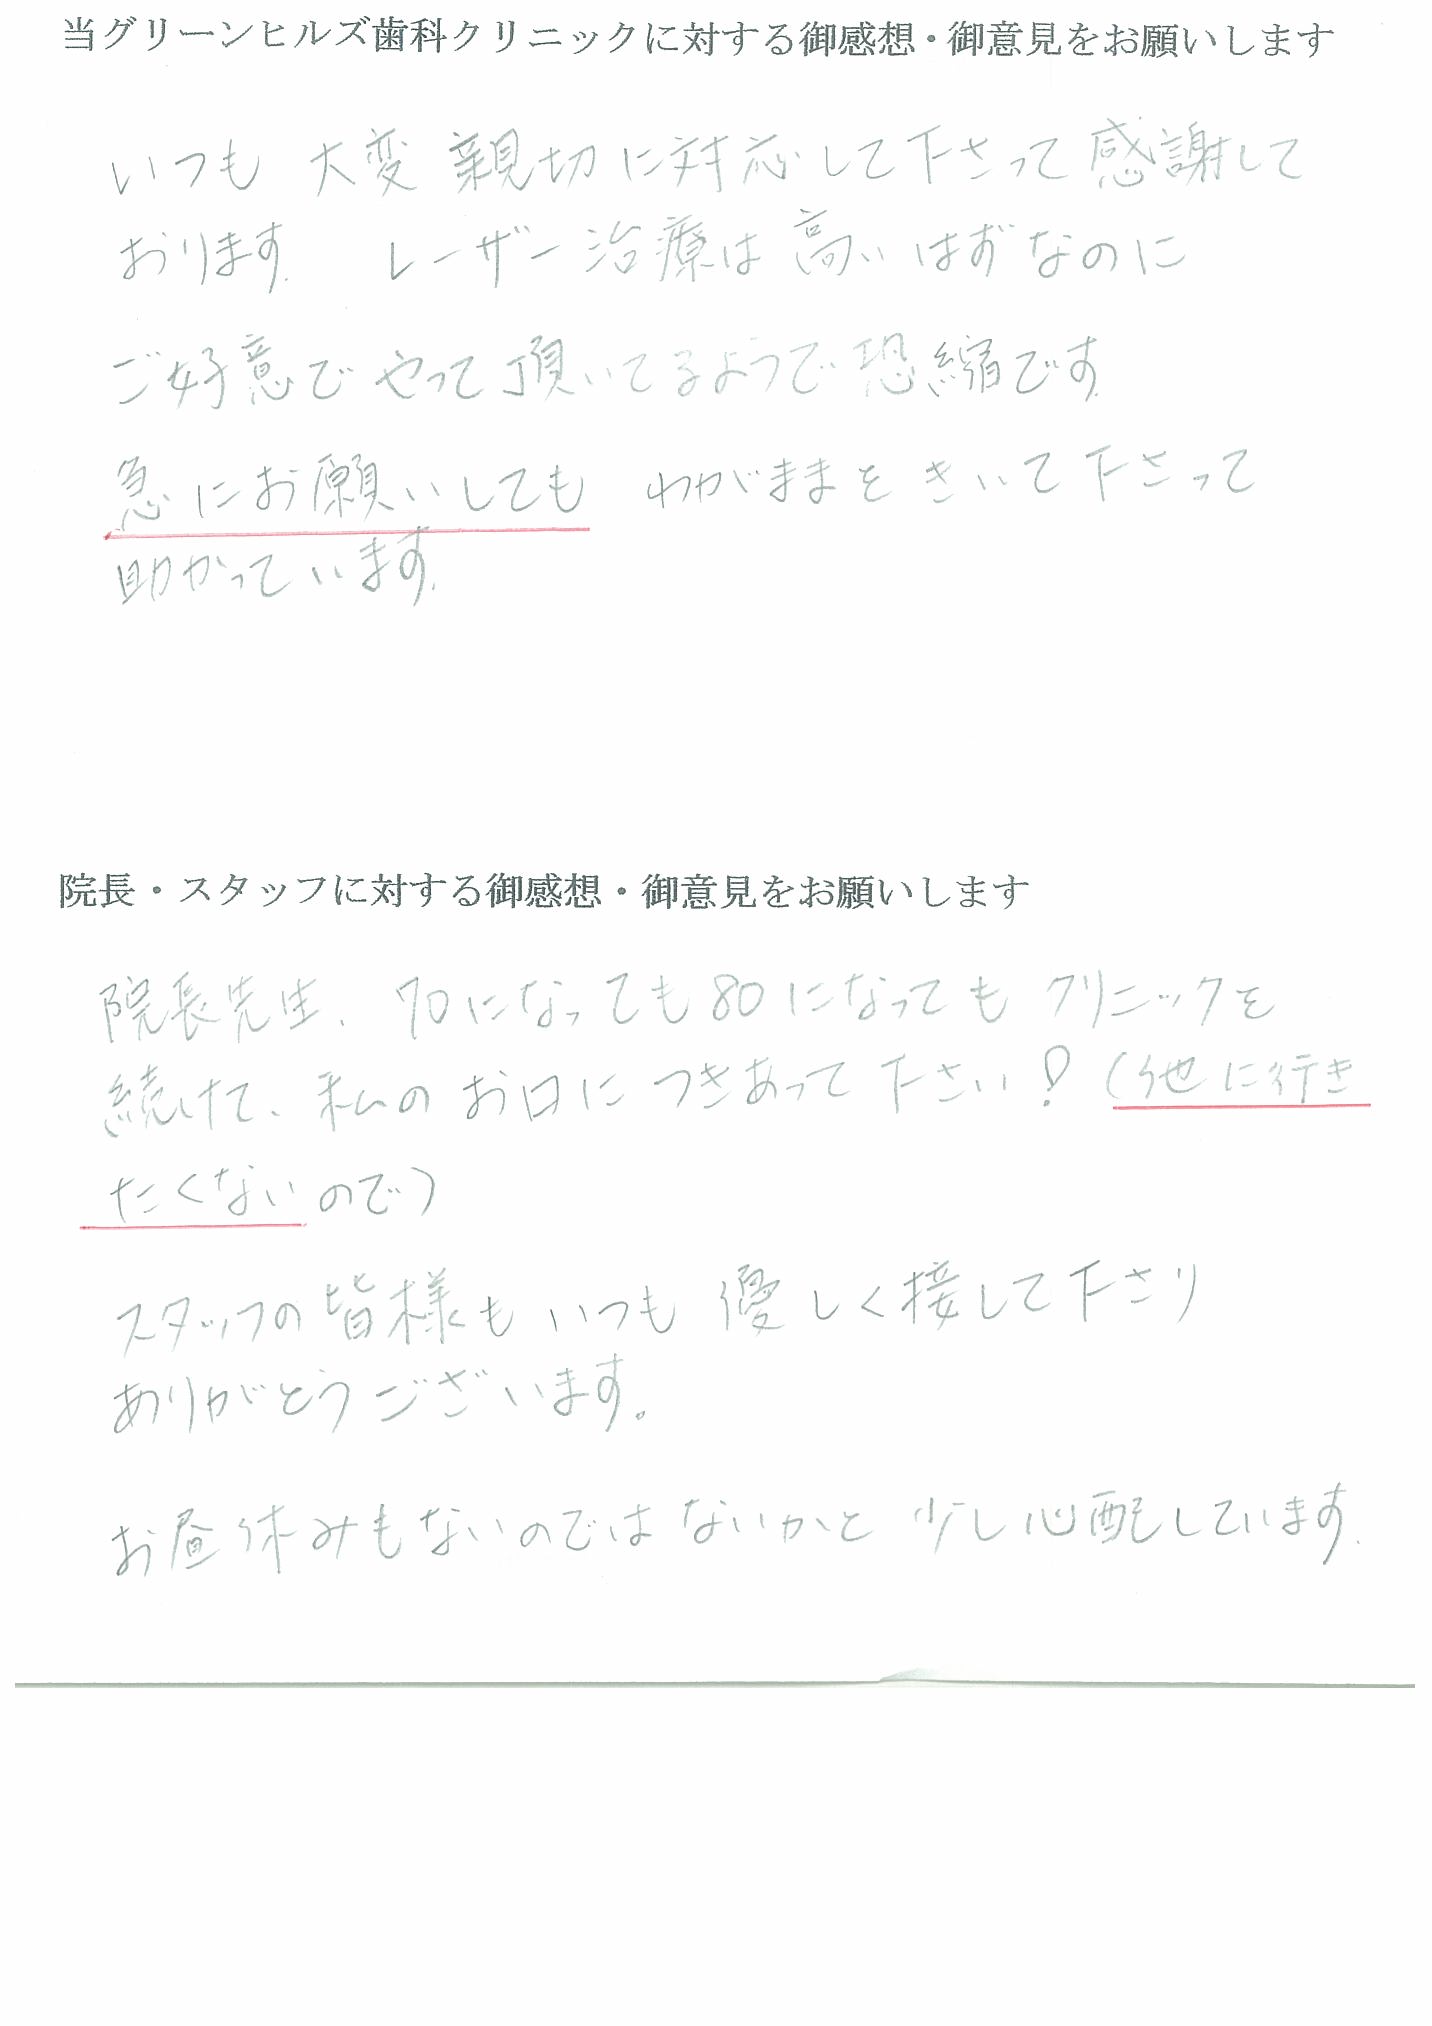 当グリーンヒルズ歯科クリニックに対する御感想・御意見をお願いします
いつも 大変 親切に対応して下さって 感謝して
おります. レーザー治療は 高いはずなのに
ご好意で やって頂いてるようで 恐縮です.
急にお願いしても わがままを きいて下さって
助かっています.
院長・スタッフに対する御感想・御意見をお願いします
院長先生、70になっても80になっても クリニックを
続けて、私の お口に つきあって 下さい！（他に行き
たくないので）
スタッフの皆様も いつも 優しく接して下さり
ありがとうございます。
お昼休みもないのでは ないかと 少し心配しています.